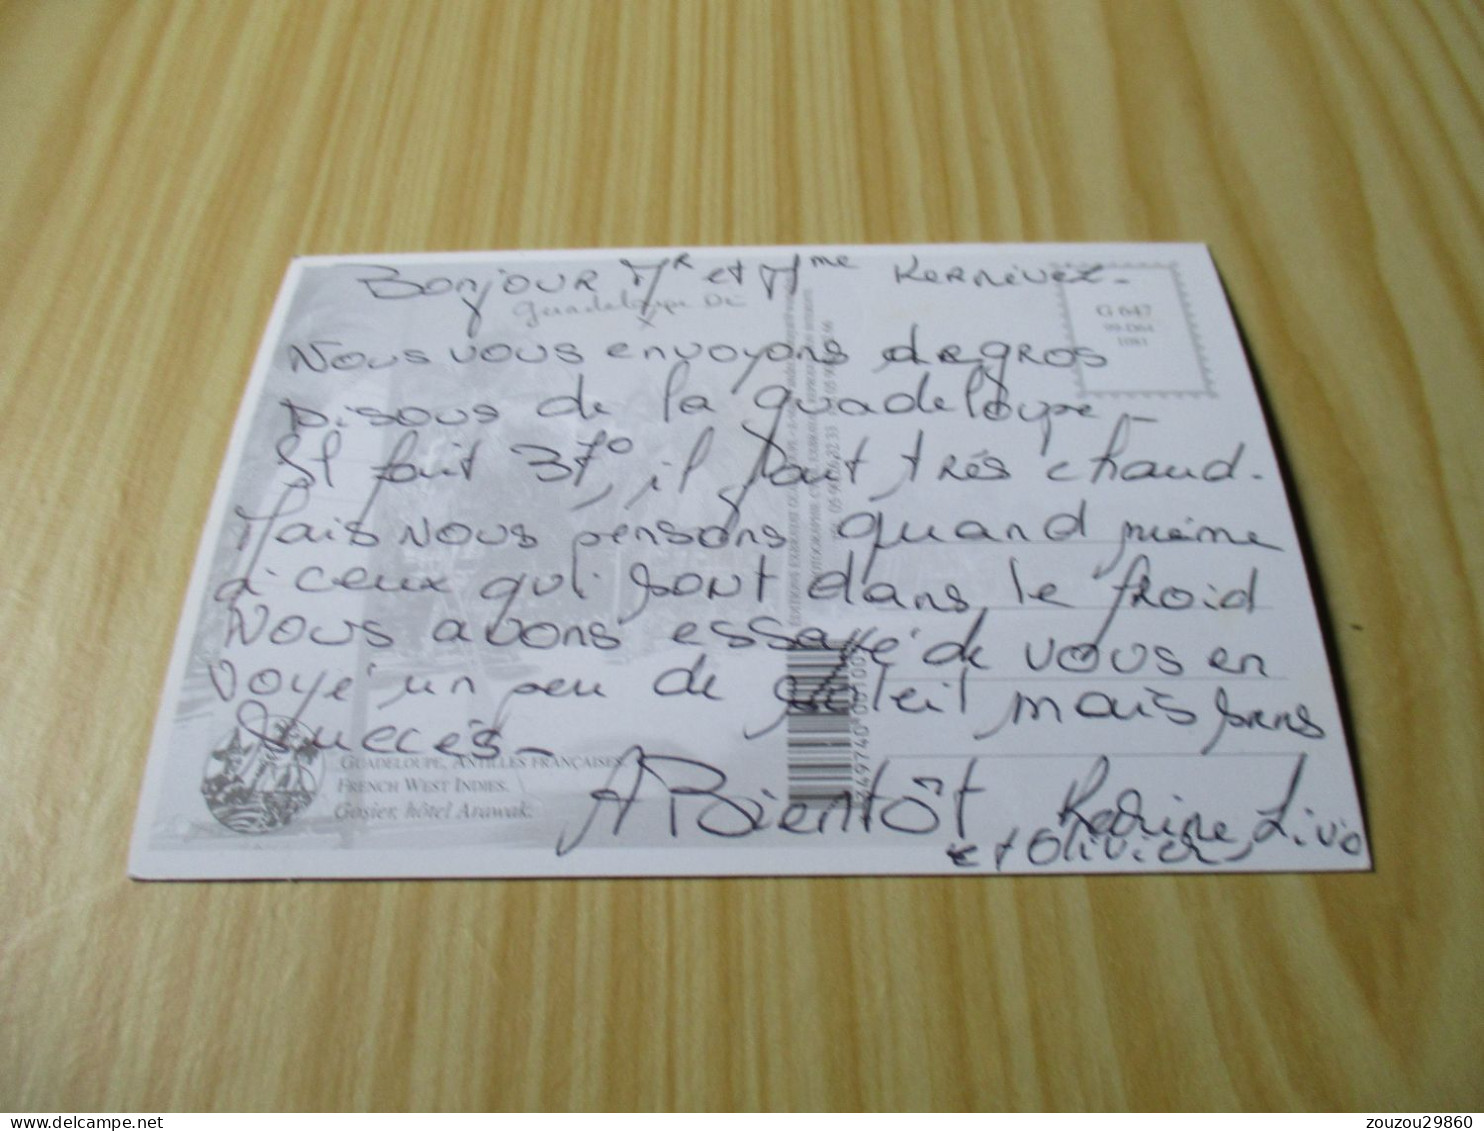 Bonjour Mr et Mme Kernével -
Guadeloupe
G 647
99-D64
1081
Nous vous envoyons de gros
bisous de la guadeloupe -
Il fait 37°, il fait très chaud.
Mais nous pensons quand même
à ceux qui sont dans le froid
Nous avons essayé de vous en
voyé un peu de soleil mais sans
succès -
GUADELOUPE, ANTILLES FRANÇAISES.
FRENCH WEST INDIES.
Gosier, hôtel Arawak.
A Bientôt Karine, Livio
et Olivier
zouzou29860